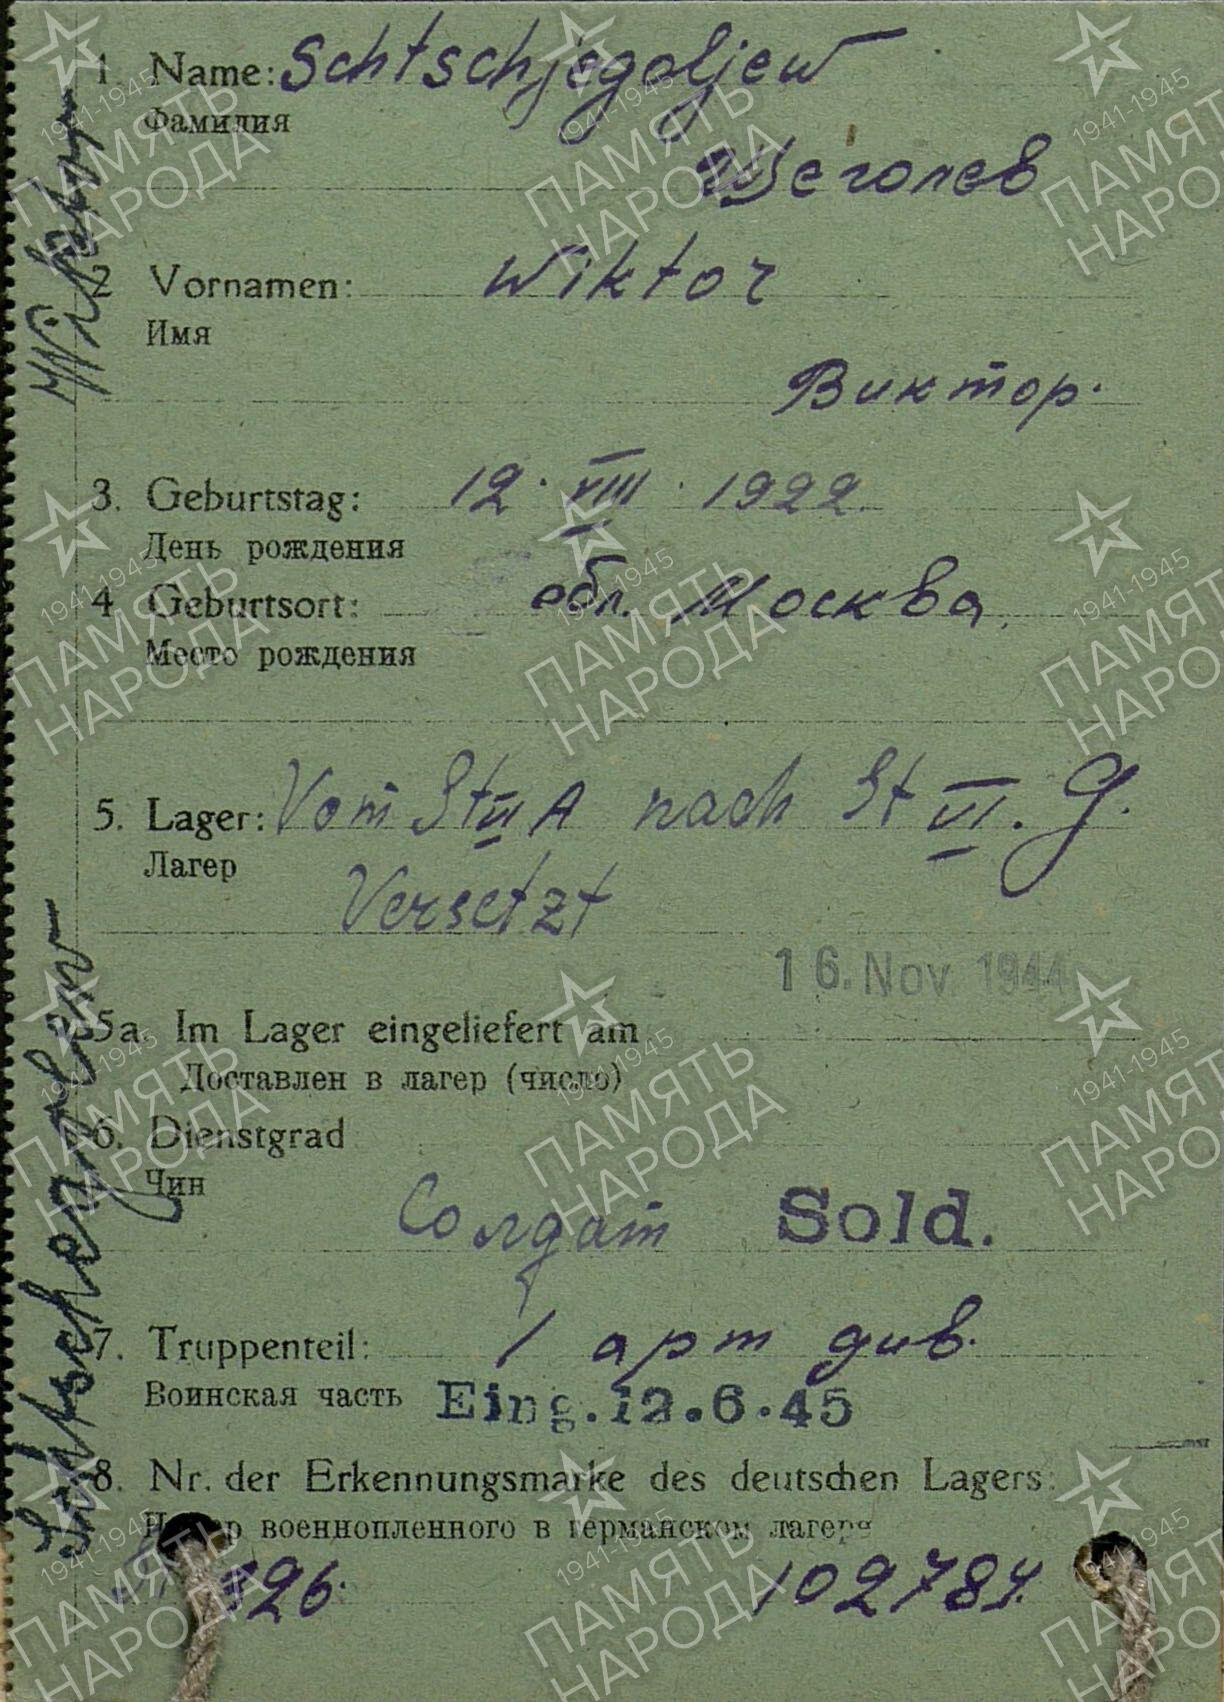 1. Name: Schtschjegoljew
Фамилия
Щеголев
2 Vornamen: Wiktor
Имя
Виктор.
3. Geburtstag: 12. VIII. 1922.
День рождения
4 Geburtsort: обл. Москва
Место рождения
5. Lager: Vom St II A nach St VI. G.
Лагер
Versetzt
16. Nov. 1944
5a. Im Lager eingeliefert am
Доставлен в лагер (число)
6. Dienstgrad
Чин
Солдат Sold.
7. Truppenteil: 1 арт див.
Воинская часть Eing. 12.6.45
8. Nr. der Erkennungsmarke des deutschen Lagers:
военнопленного в германском лагере
326. 102784.
Wiktor
1941-1945
ПАМЯТЬ
НАРОДА